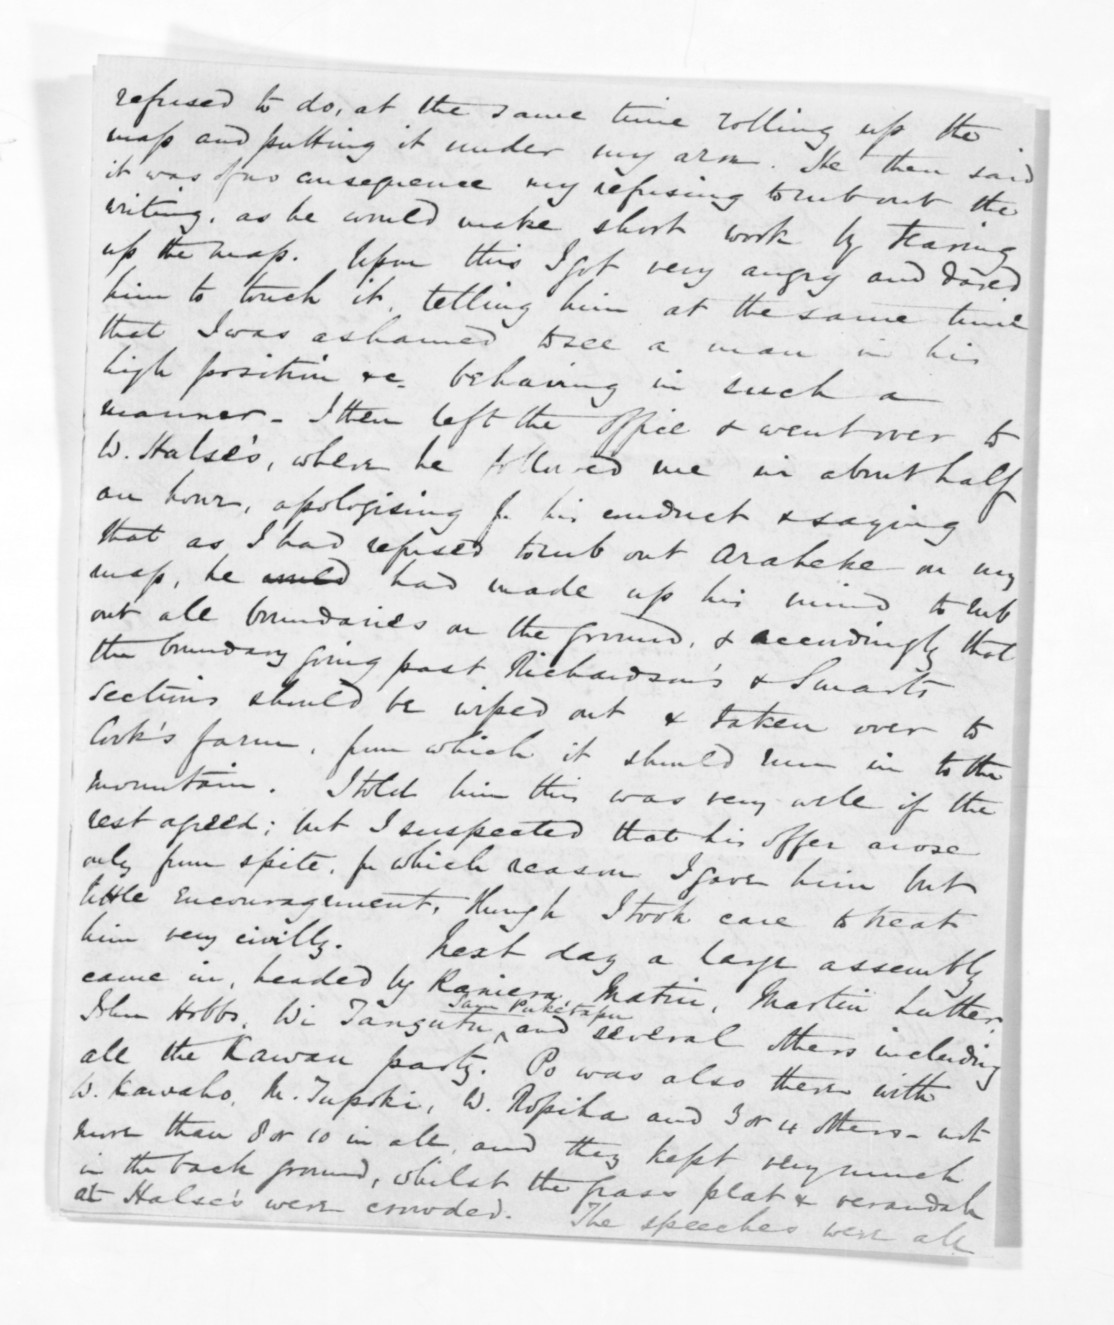 refused to do, at the same time rolling up the
map and putting it under my arm. He then said
it was of no consequence my refusing to rub out the
writing, as he could make short work by tearing
up the map. Upon this I got very angry and dared
him to touch it, telling him at the same time
that I was ashamed to see a man in his
high position &c. behaving in such a
manner - I then left the office & went over to
W. Halse's, where he followed me in about half
an hour, apologising for his conduct & saying
that as I had refused to rub out Araheke on my
map, he would had made up his mind to rub
out all boundaries on the ground, & accordingly that
the boundary going past Richardson's & Smart's
sections should be wiped out & taken over to
Cook's farm, from which it should run in to the
mountain. I told him this was very well if the
rest agreed; but I suspected that his offer arose
only from spite, for which reason I gave him but
little encouragement, though I took care to treat
him very civilly. Next day a large assembly
came in, headed by Raniera, Matiu, Martin Luther,
Tamı Puketapu
John Hobbs, Wi Tangutu, and several others including
all the Kawau party. Po was also there with
W. Kawaho, M. Tupoki, W. Ropiha and 3 or 4 others - not
more than 8 or 10 in all, and they kept very much
in the back ground, whilst the grass plat & verandah
at Halse's were crowded. The speeches were all